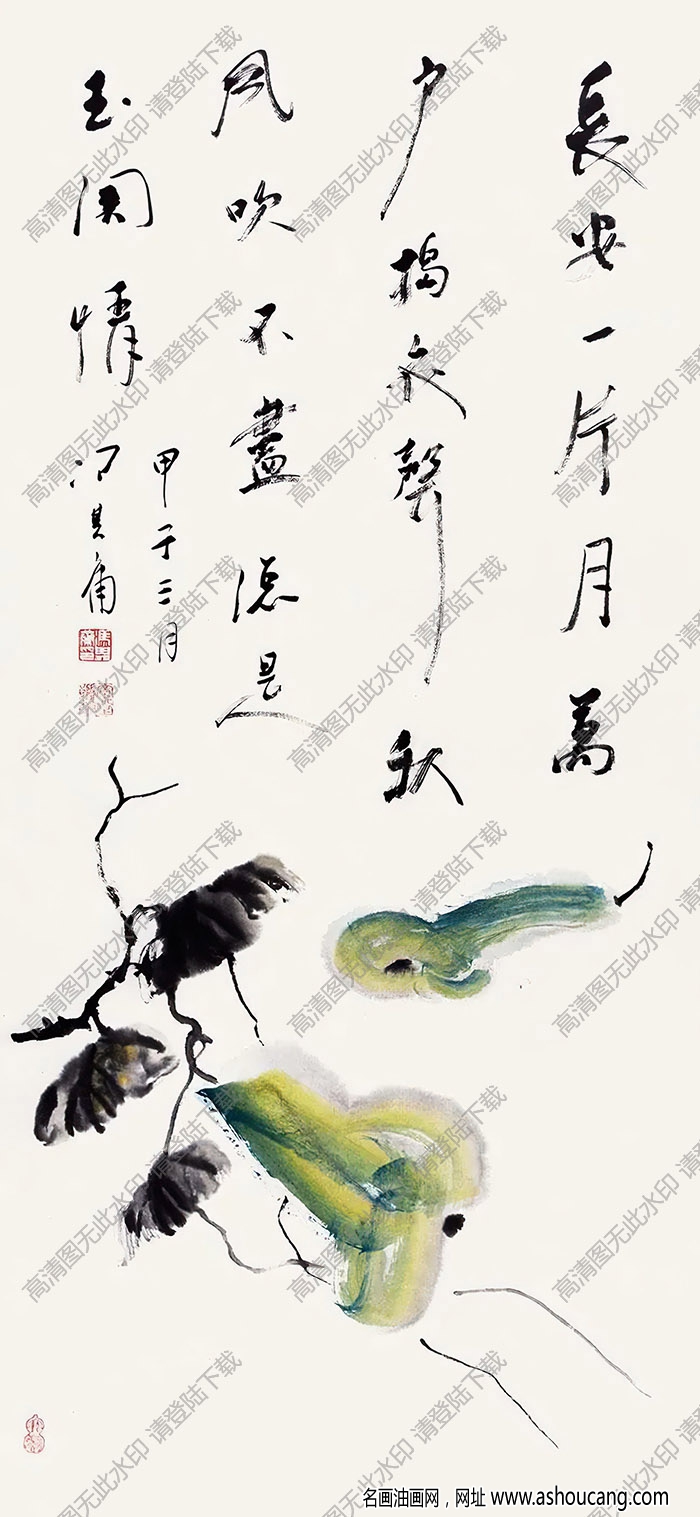 長安一片月萬
户擣衣聲秋
風吹不盡總是
玉関情
甲子三月
冯其庸
高清图无此水印 请登陆下载
名画油画网，网址 www.ashoucang.com